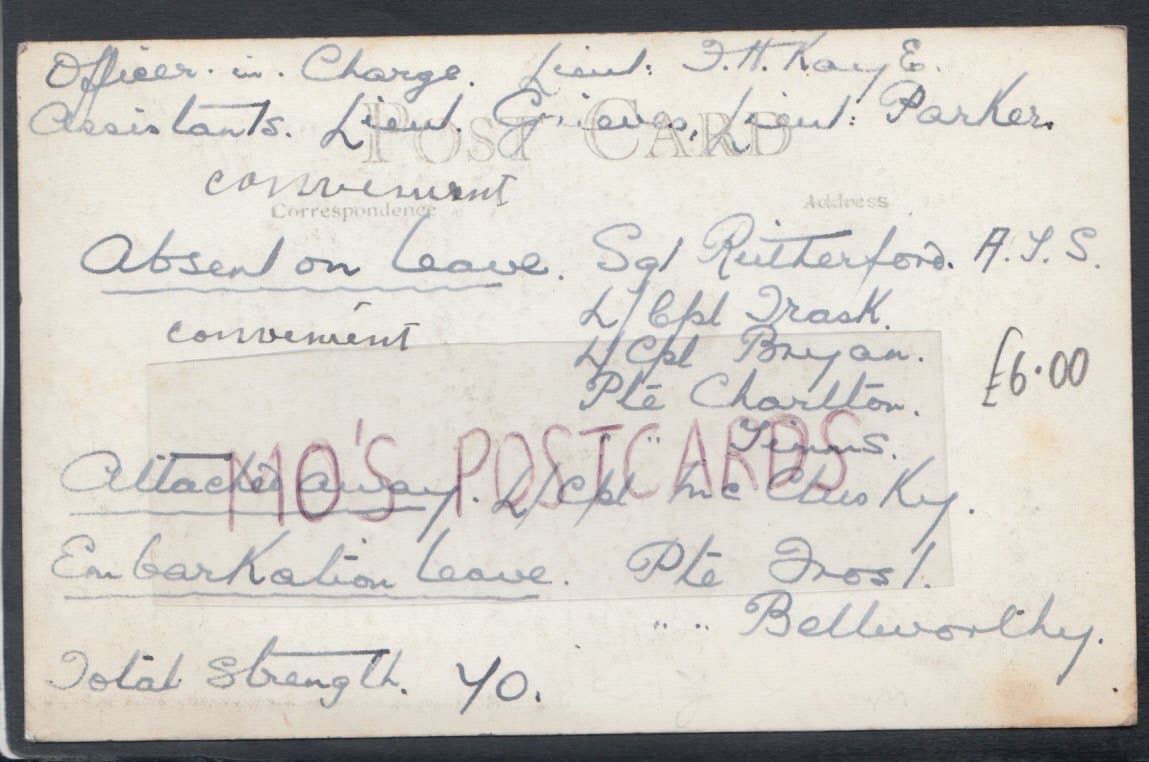 Officer. in. Charge. Lieut: F.H. Kay E.
Assistants. Lieut. Grieves, Lieut: Parker.
POST CARD
convenient
Correspondence
Address
Absent on Leave. Sgt Rutherford. A.T.S.
L/Cpl Trask.
convenient
L/Cpl Bryan.
£6.00
Pte Charlton.
" Timms.
MO'S POSTCARDS
Attached away. L/Cpl Mc Clusky.
Embarkation Leave. Pte Frost.
" " Bellworthy.
Total Strength. 40.